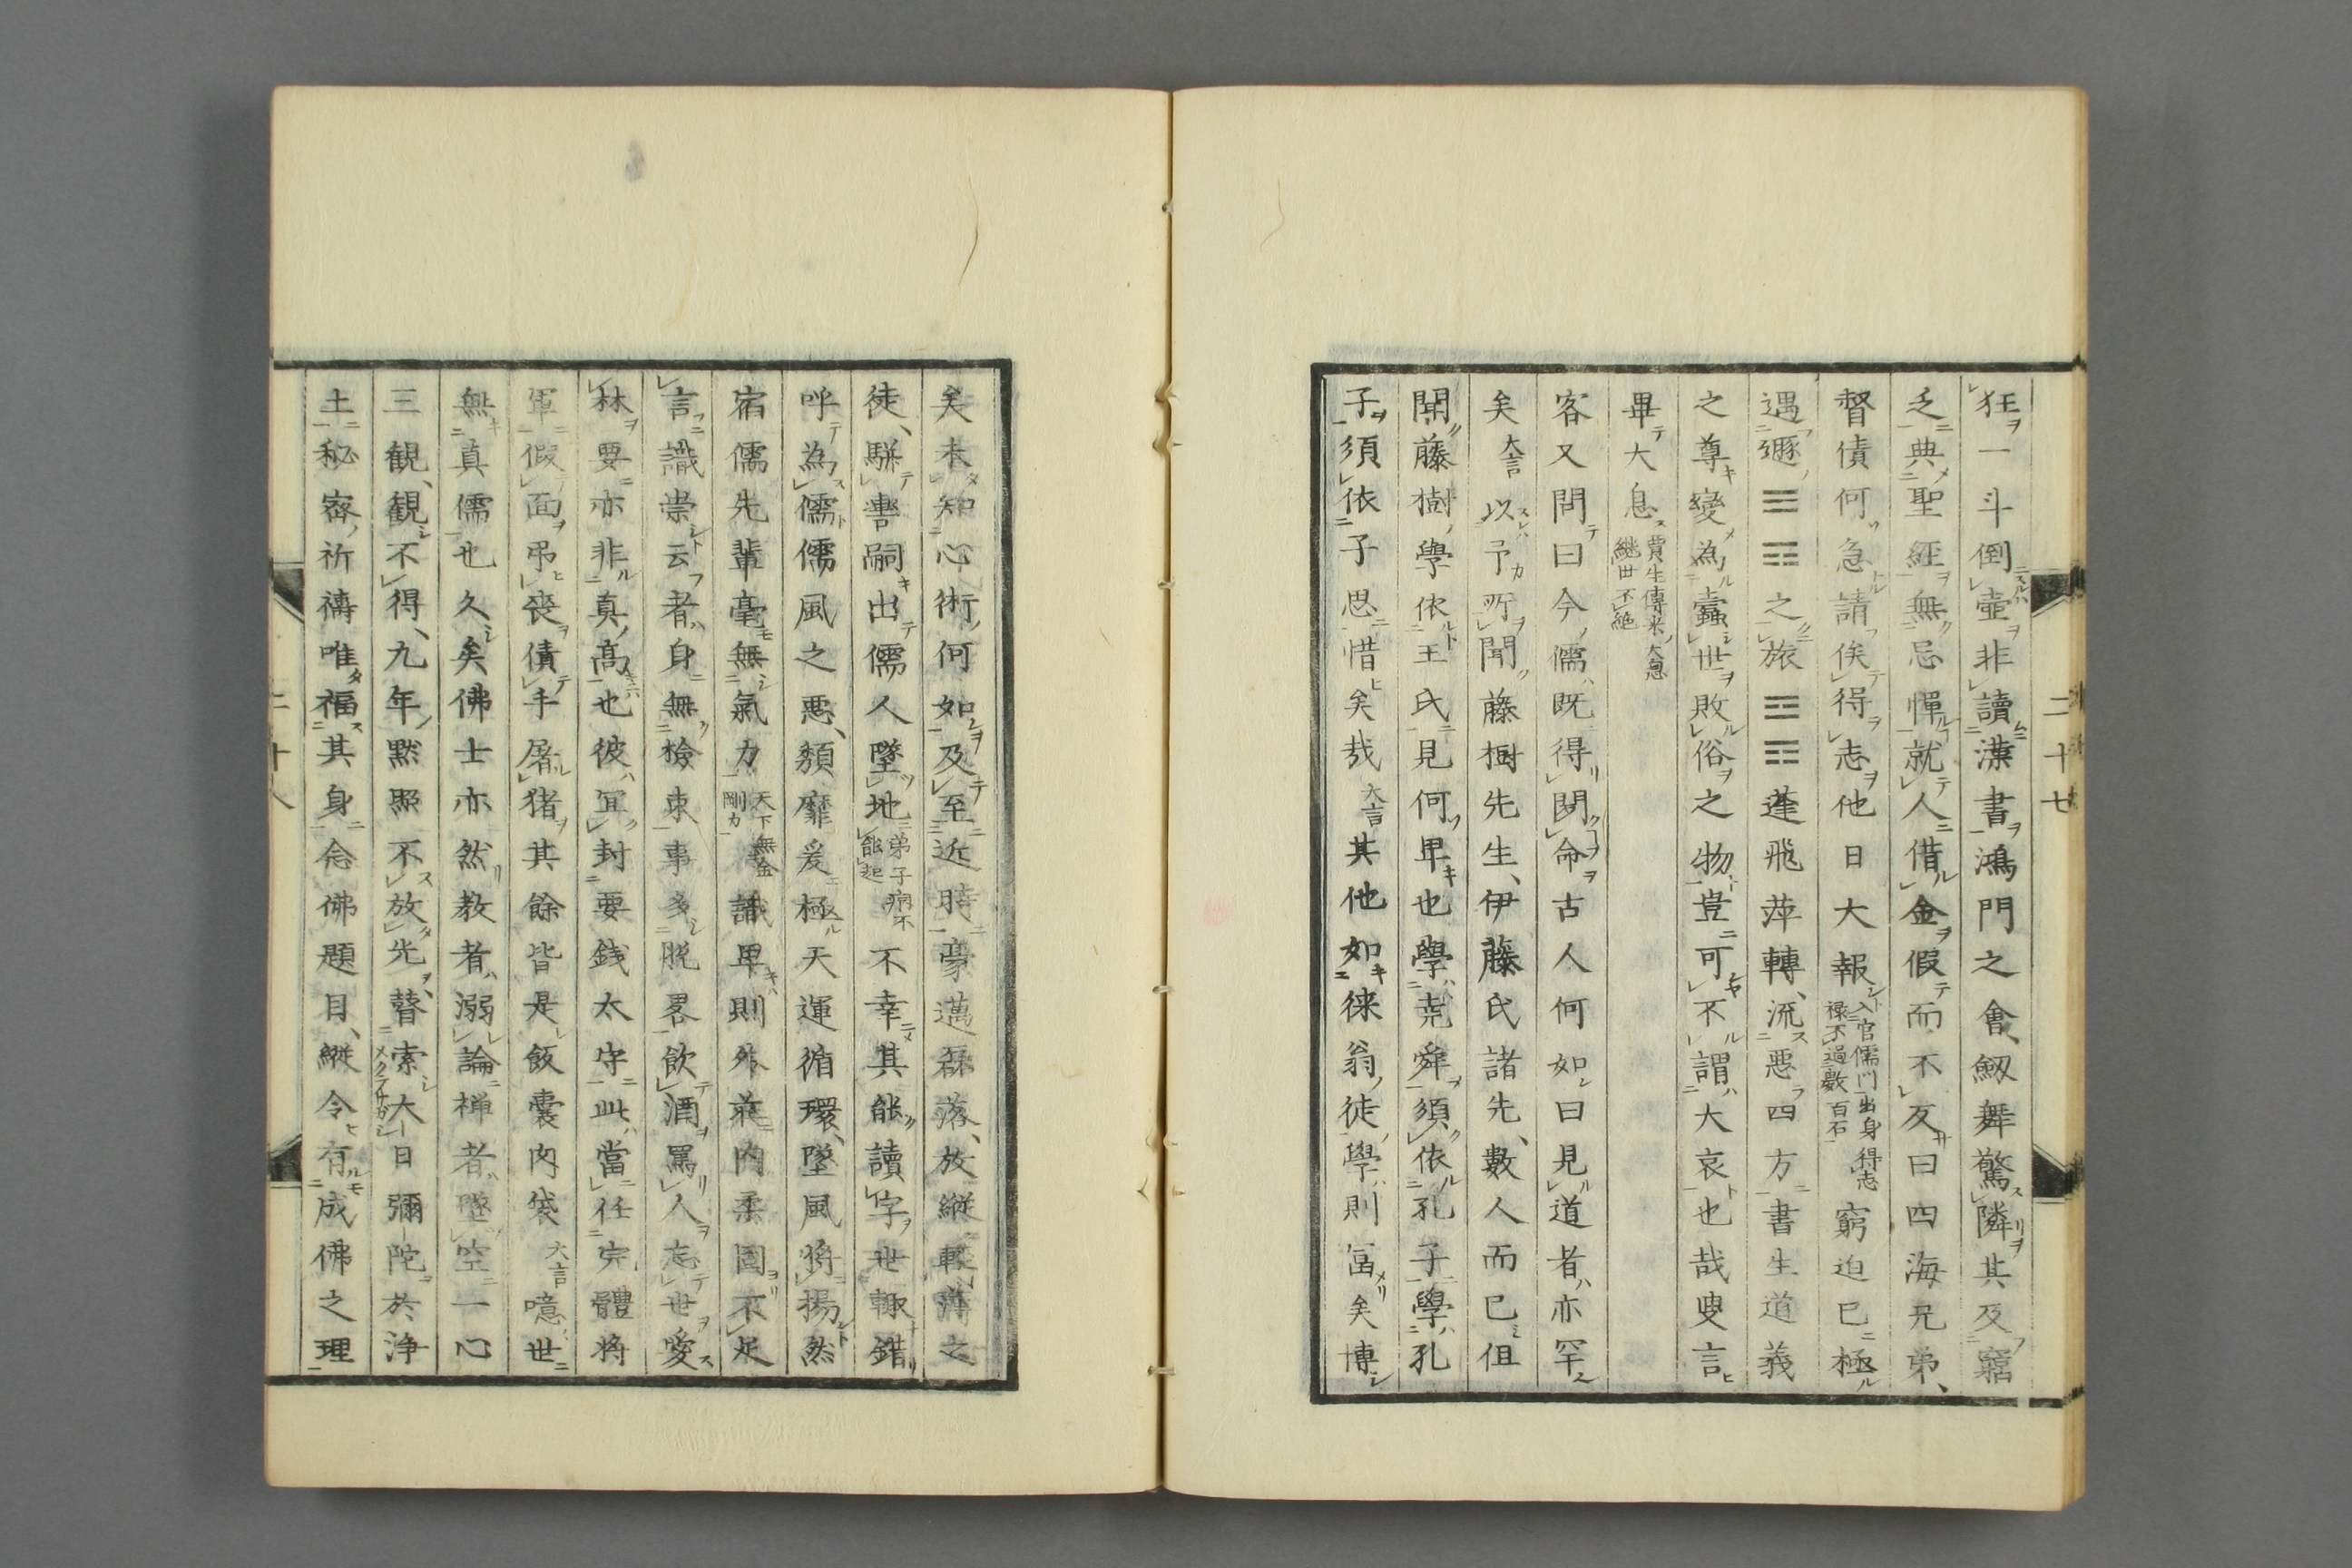 狂一斗倒壷非讀漢書鴻門之會、劔舞驚隣其及窮
乏典聖經無忌憚就人借金假而不反曰四海兄弟、
督債何急請俟得志他日大報入官儒門出身得志禄不過數百石窮迫已極
遇遯䷠之旅䷷蓬飛萍轉、流惡四方書生道義
之尊變為蠹世敗俗之物豈可不謂大哀也哉叟言
畢大息賈生傳来大息継世不絶
客又問曰今儒既得聞命古人何如曰見道者亦罕
矣大言以予所聞藤樹先生、伊藤氏諸先、數人而已但
聞藤樹學依王氏見何早也學尭舜須依孔子學孔
子須依子思惜矣哉大言其他如徠翁徒學則冨矣博
二十七
矣未知心術何如及至近時豪邁磊落、放縦輕薄之
徒、駢轡嗣出儒人墜地弟子病不能起不幸其能讀字世輙錯
呼為儒儒風之惡、頽靡爰極天運循環、墜風将揚然
宿儒先輩毫無氣力天下無金剛力識卑則外兼内柔固不足
言識崇云者身無檢束事多脱畧飲酒罵人忘世愛
林要亦非真髙也彼冝封要銭太守此當任完體将
軍假面弔喪債手屠猪其餘皆是飯嚢肉袋大言噫世
無真儒也久矣佛士亦然教者溺論禅者墜空一心
三観、観不得、九年黙照不放光、瞽索大日彌陀於浄
土秘密祈禱唯福其身念佛題目、縦令有成佛之理
二十八